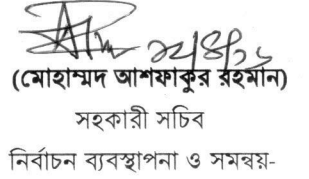 (মোহাম্মদ আশফাকুর রহমান)
সহকারী সচিব
নির্বাচন ব্যবস্থাপনা ও সমন্বয়-